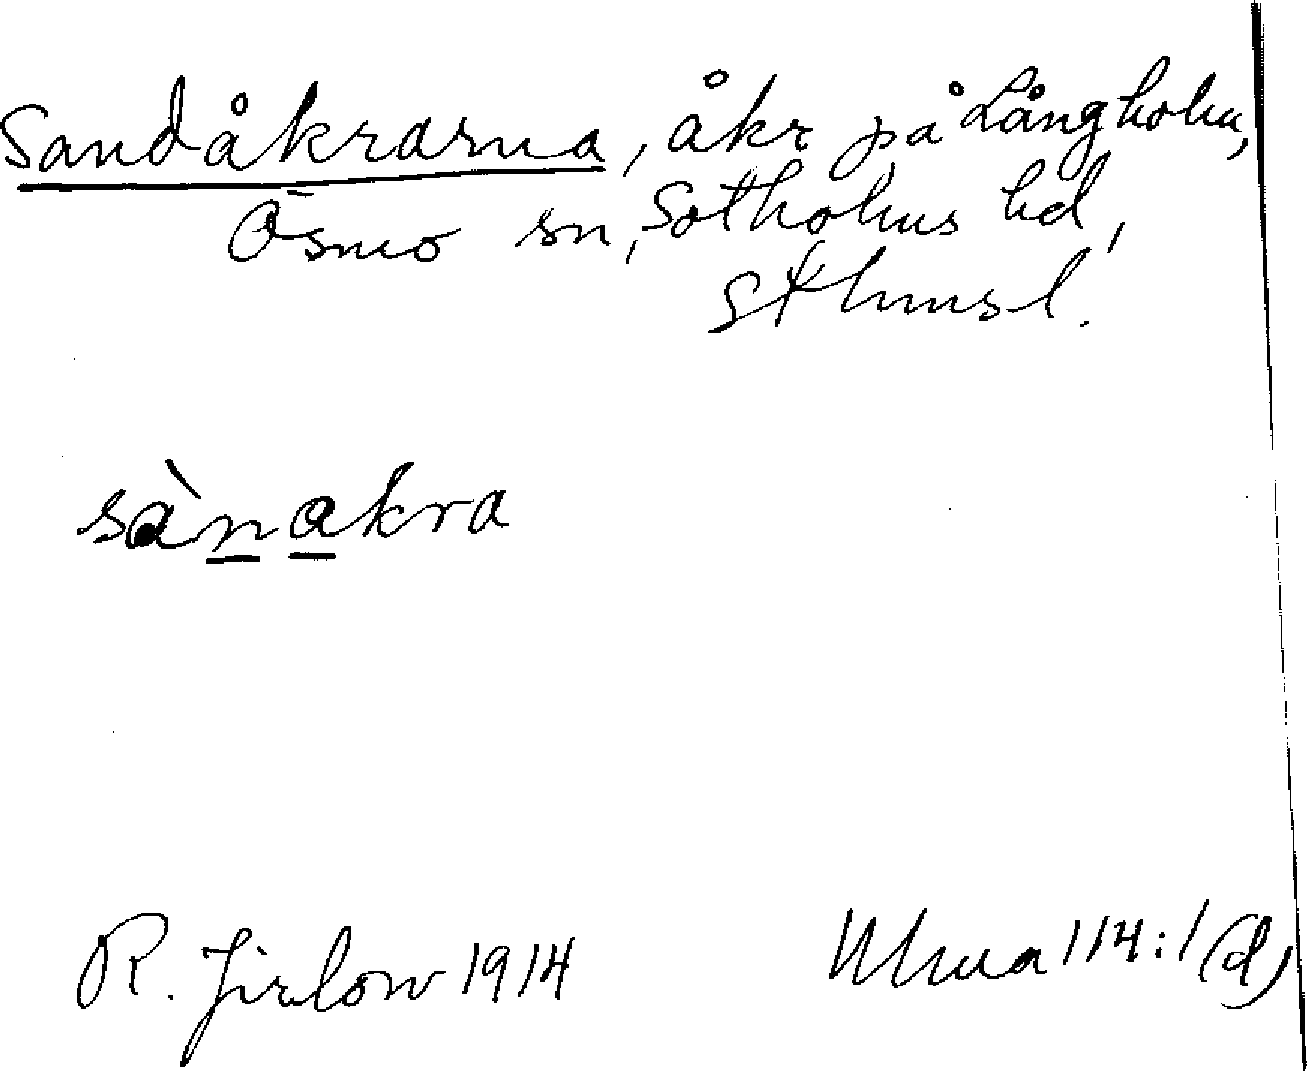 Sandåkrarna, åkr på Långholm,
Ösmo sn, Sotholms hd,
Sthmsl.
sànakra
R. Jirlow 1914
Ulma 114:1 (d)